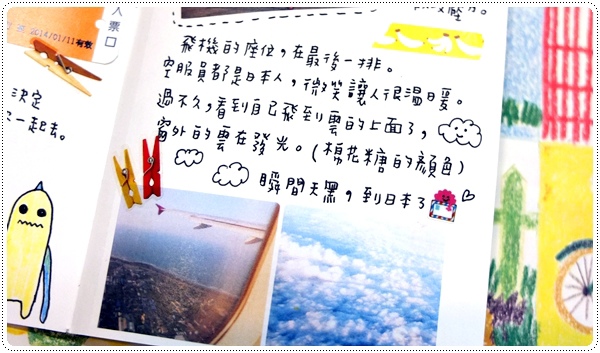 入票口
2014/01/11有效
決定
一起去。
飛機的座位，在最後一排。
空服員都是日本人，微笑讓人很溫暖。
過不久，看到自己飛到雲的上面了，
窗外的雲在發光。(棉花糖的顏色)
瞬間天黑，到日本了